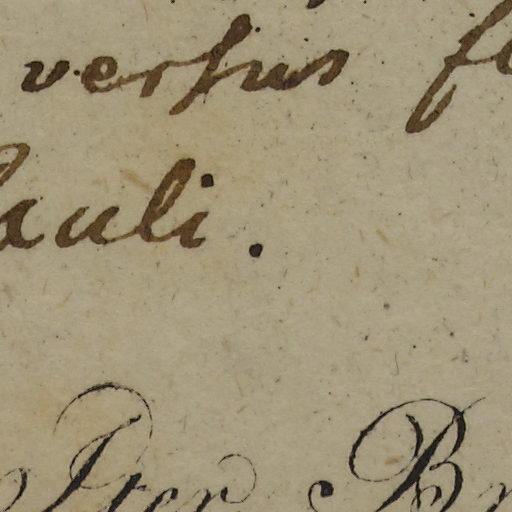 versus
auli.
Iter B